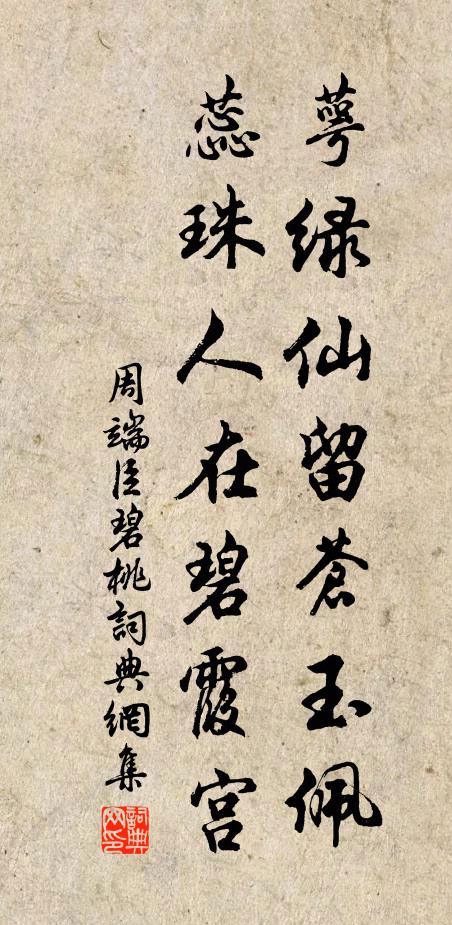 萼绿仙留苍玉佩
蕊珠人在碧霞宫
周端臣碧桃詞典網集
詞典
网印